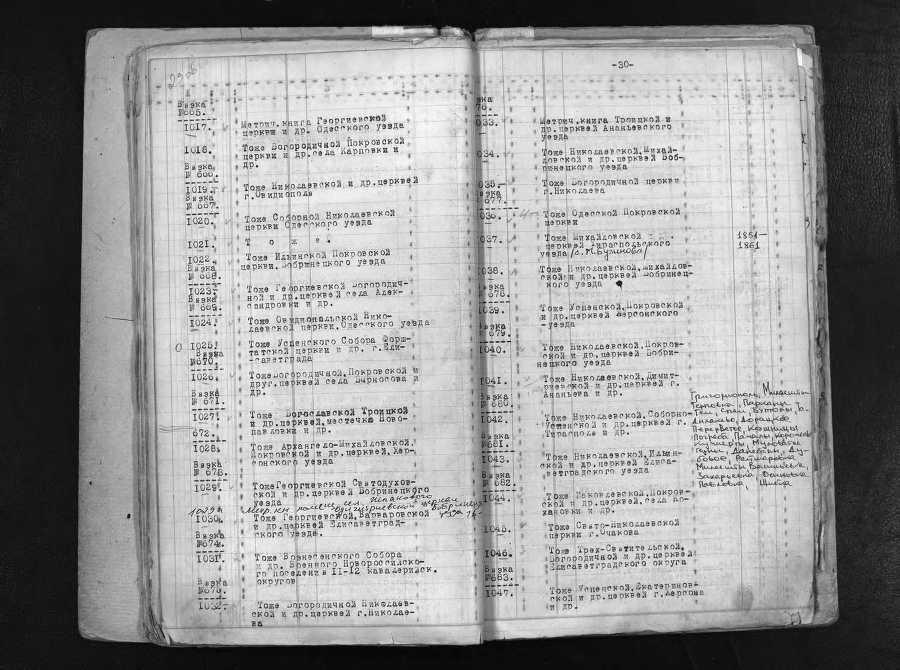 Вязка
№665.
1017.
Метрич.книга Георгиевской
церкви и др. Одесского уезда
1018.
Тоже Богородичной Покровской
церкви и др.села Карповки и
др.
Вязка
№ 666.
1019.
Тоже Николаевской и др.церквей
г.Овидиополя
Вязка
№ 667.
1020.
Тоже Соборной Николаевской
церкви Одесского уезда
1021.
Т о ж е.
1022.
Тоже Ильинской Покровской
церкви.Бобринецкого уезда
Вязка
№ 668.
1023.
Тоже Георгиевской Богородич-
ной и др.церквей села Алек-
сандровки и др.
Вязка
№ 669.
1024.
Тоже Овидиопольской Нико-
лаевской церкви.Одесского уезда
1025.
Тоже Успенского Собора Форш-
татской церкви и др. г.Ели-
саветграда
Вязка
№670.
1026.
Тоже Богородичной,Покровской и
друг.церквей села Бурносова и
др.
Вязка
№ 671.
1027.
Тоже Богославской Троицкой
и др.церквей,местечко Ново-
павловки и др.
672.
1028.
Тоже Архангело-Михайловской,
Покровской и др.церквей,Хер-
сонского уезда
Вязка
№ 673.
1029.
Тоже Георгиевской Святодухов-
ской и др.церквей Бобринецкого
уезда
1029а
1030.
Тоже Георгиевской,Варваровской
и др.церквей Елисаветград-
ского уезда.
Вязка
№674.
1031.
Тоже Вознесенского Собора
и др. Военного Новороссийско-
го поселения 11-12 кавалерийск.
округов
Вязка
№675.
1032.
Тоже Богородичной Николаев-
ской и др.церквей г.Николае-
ва
-30-
вка
76.
033.
Метрич.книга Троицкой и
др.церквей Ананьевского
уезда
034.
Тоже Николаевской,Михай-
ловской и др.церквей Боб-
ринецкого уезда
035.
Тоже Богородичной церкви
г.Николаева
вязка
677.
036.
Тоже Одесской Покровской
церкви
037.
Тоже Михайловской
церквей Тираспольского
уезда /с.М.Бузиново/
1861-
1861
038.
Тоже Николаевской,Михайлов-
ской и др.церквей Бобринец-
кого уезда
вка
№ 678.
039.
Тоже Успенской,Покровской
и др.церквей Херсонского
-уезда
вязка
679.
1040.
Тоже Николаевской,Покров-
ской и др.церквей Бобри-
нецкого уезда
1041.
Тоже Николаевской,Димит-
риевской и др.церквей г.
Ананьева и др.
вка
№ 680.
1042.
Тоже Николаевской,Соборно-
Успенской и др.церквей г.
Тирасполя и др.
Григориополь,
вязка
681.
1043.
Тоже Николаевской,Ильин-
ской и др.церквей Елиса-
ветградского уезда
Вязка
№ 682.
1044.
Тоже Николаевской,Покров-
ской и др.церквей,села
и др.
1045.
Тоже Свято-Николаевской
церкви г.Очакова
1046.
Тоже Трех-Святительской,
Богородичной и др.церквей
Елисаветградского округа
Вязка
№683.
1047.
Тоже Успенской,Екатеринов-
ской и др.церквей г.Херсона
и др.